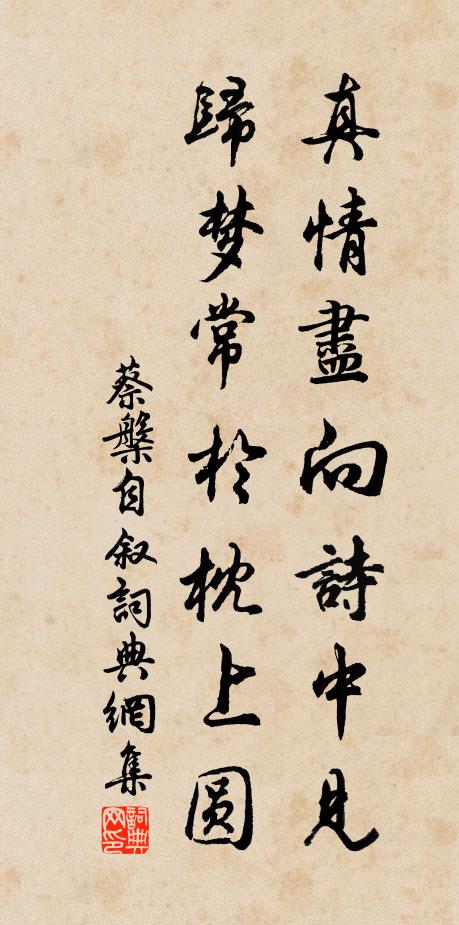 真情盡向詩中見
歸梦常於枕上圆
蔡槃自叙詞典網集
詞典网印